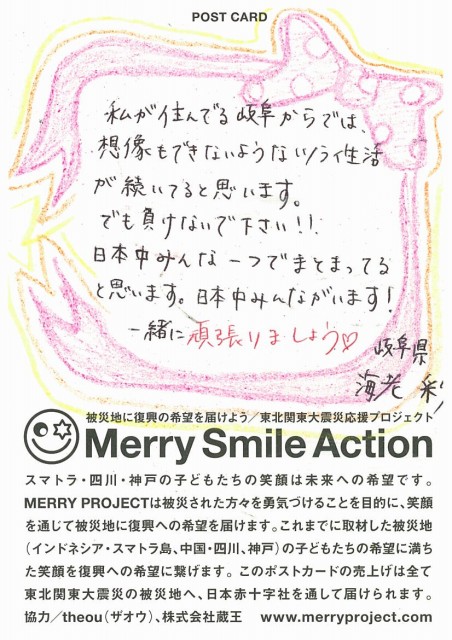 POST CARD
私が住んでる岐阜からでは、
想像もできないようなツライ生活
が続いてると思います。
でも負けないで下さい!!
日本中みんな一つでまとまってる
と思います。日本中みんながいます!
一緒に頑張りましょう♡
岐阜県
海老 彩
被災地に復興の希望を届けよう/東北関東大震災応援プロジェクト
Merry Smile Action
スマトラ・四川・神戸の子どもたちの笑顔は未来への希望です。
MERRY PROJECTは被災された方々を勇気づけることを目的に、笑顔
を通じて被災地に復興への希望を届けます。これまでに取材した被災地
(インドネシア・スマトラ島、中国・四川、神戸)の子どもたちの希望に満ち
た笑顔を復興への希望に繋げます。このポストカードの売上げは全て
東北関東大震災の被災地へ、日本赤十字社を通して届けられます。
協力/theou(ザオウ)、株式会社蔵王 www.merryproject.com